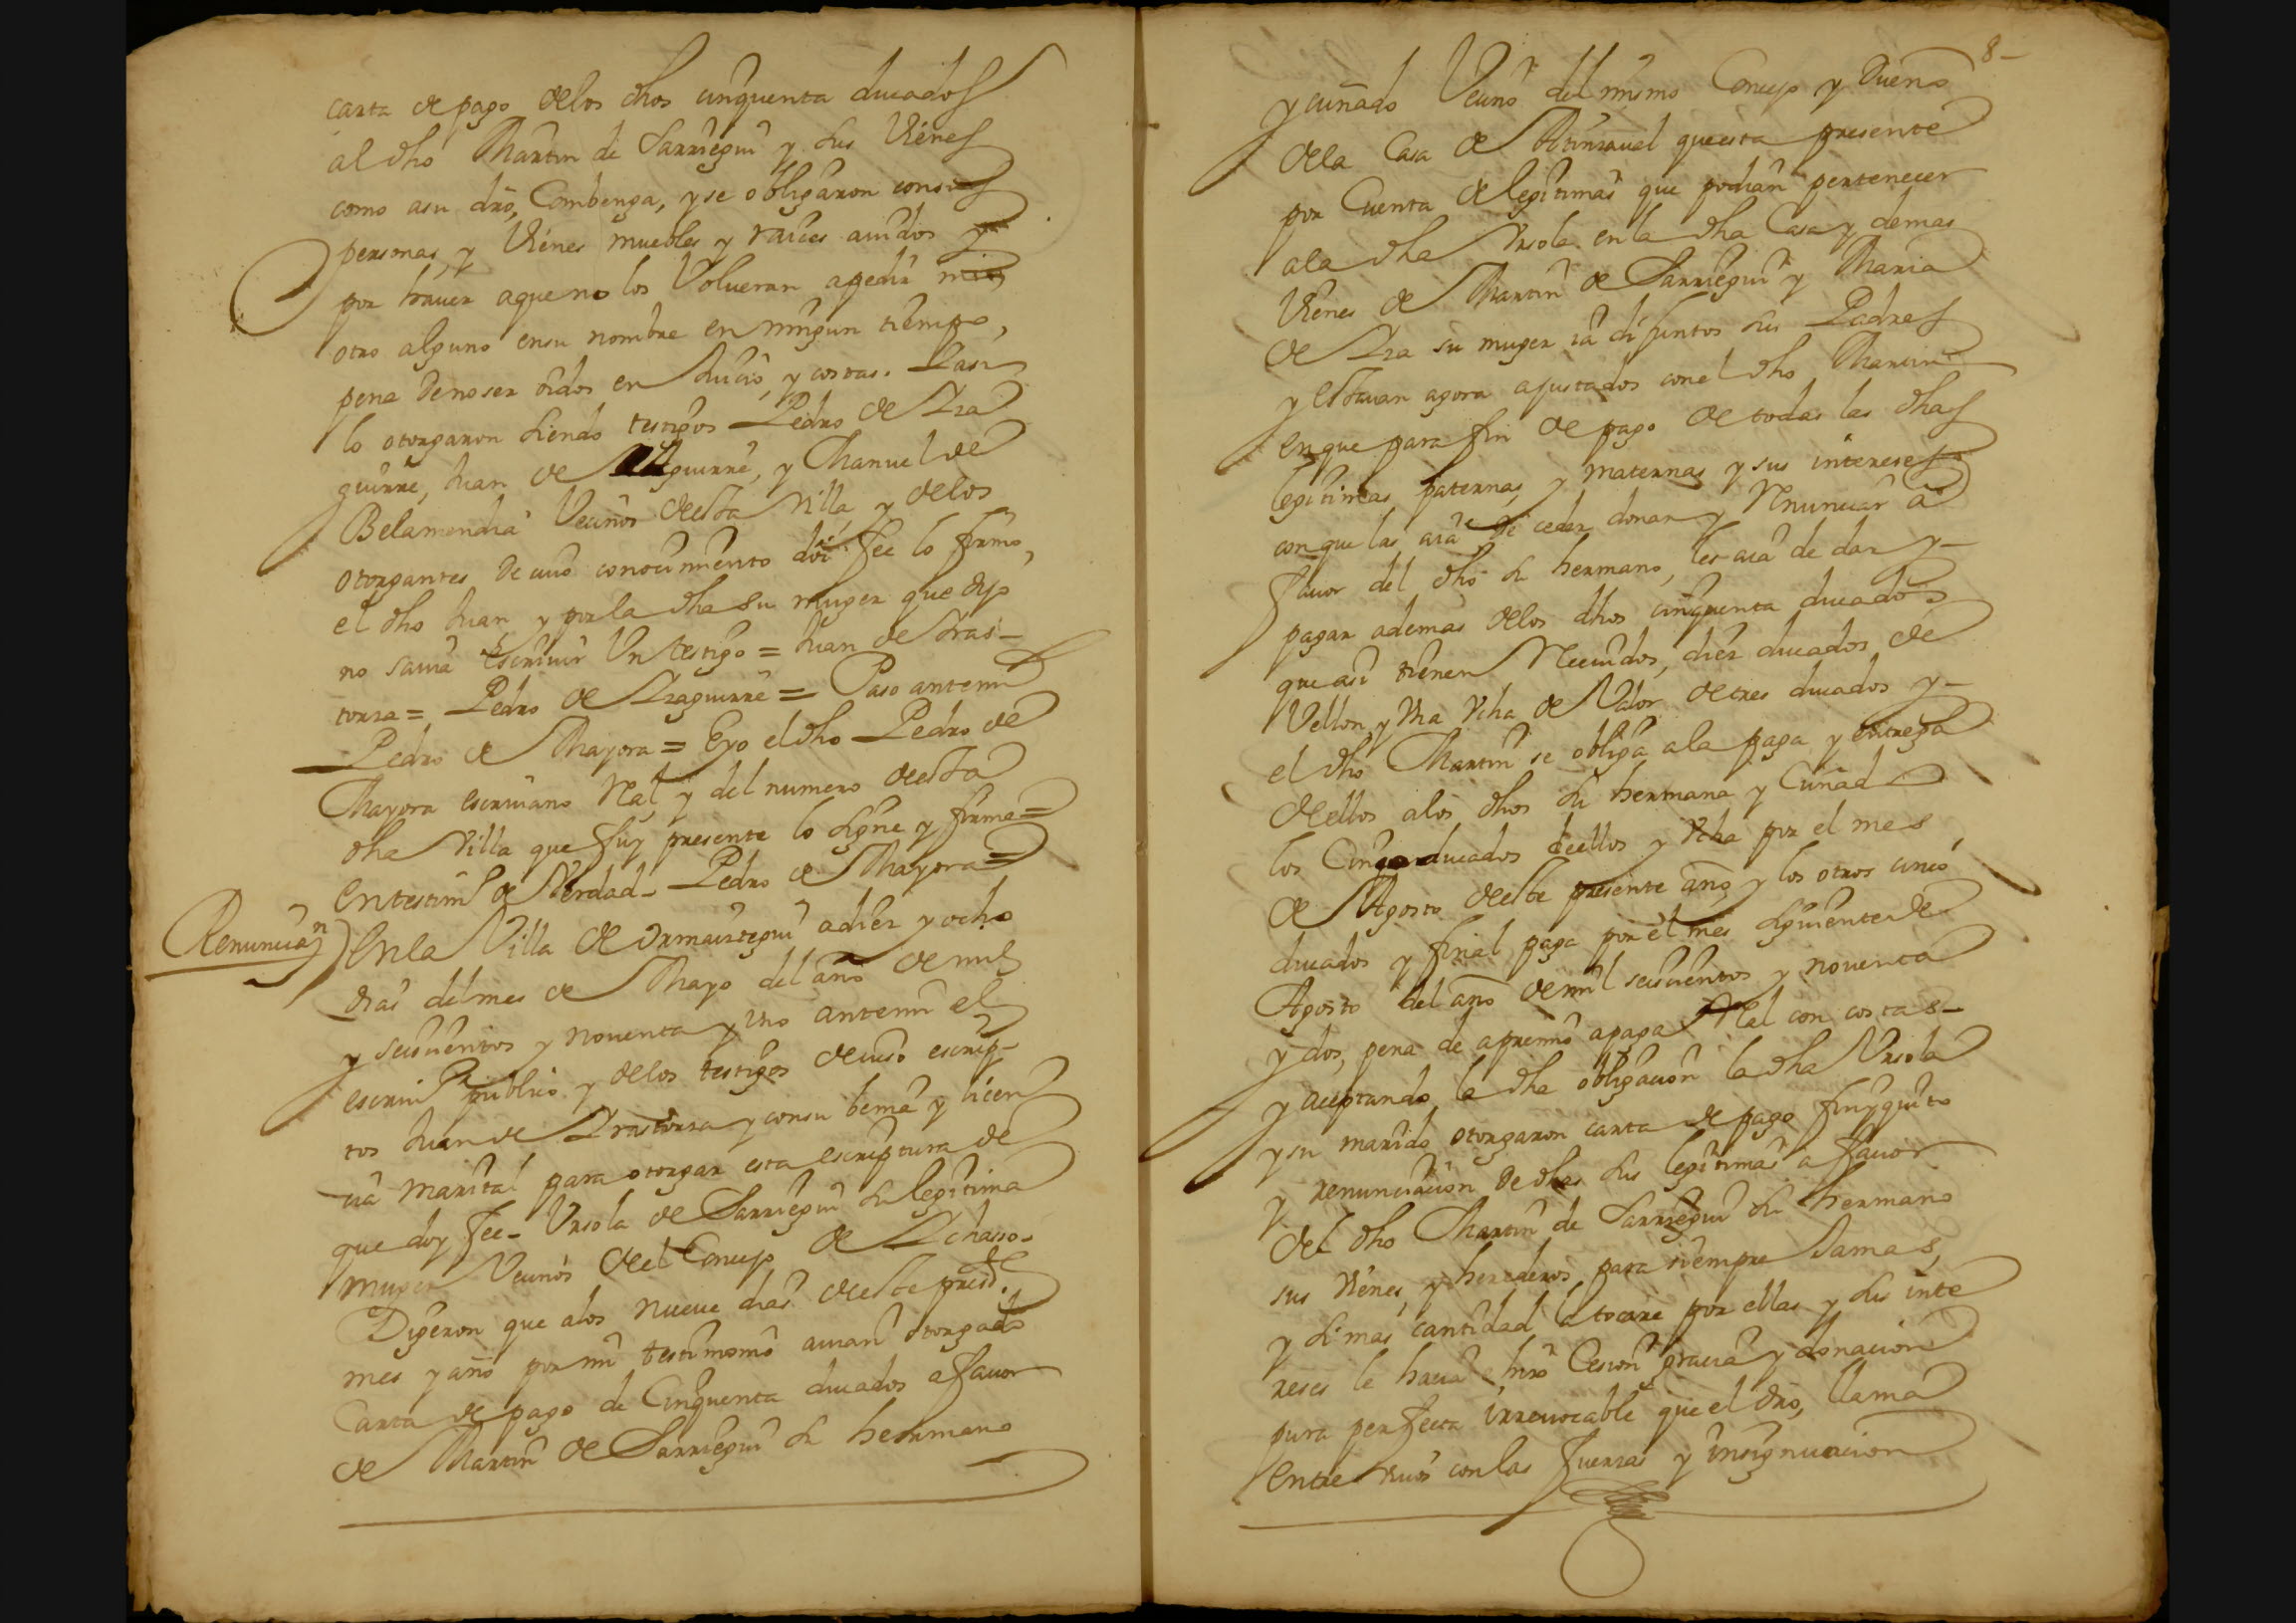 carta de pago delos dhos cinquenta ducados
al dho Martin de Sarriegui y sus vienes
como asu dro, Combenga, y se obligaron consus
personas, y vienes muebles y raices auidos y
por hauer aque no los Volueran apedir ni
otro alguno ensu nombre en ningun tiempo,
pena de no ser oidos en Juicio, y costas. Y asi
lo otorgaron siendo testigos Pedro de Yza
guirre, Juan de Aguirre, y Manuel de
Belamendia Vecinos desta Villa, y delos
otorgantes de cuio conocimiento doi fee lo firmo,
el dho Juan y por la dha su muger que dijo
no sauia escriuir Un testigo = Juan de Yras-
torza = Pedro de Yzaguirre = Paso antemi
Pedro de Mayora = E yo el dho Pedro de
Mayora escriuano Real y del numero desta
dha Villa que fuy presente lo signe y firme =
En testim.o de Verdad - Pedro de Mayora =
Renunciaon
En la Villa de Ormaiztegui adiez y ocho
dias del mes de Mayo del año de mil
y seiscientos y nouenta y uno antemi el
escriu.o publico y delos testigos de iuso escrip-
tos Juan de Yrastorza y consu benia y licen
cia marital para otorgar esta escriptura de
que doy fee - Ursola de Sarriegui su legitima
muger Vecinos del Concejo de Ychasso -
Digeron que alos nueue dias deste press.te
mes y año por mi testimonio auian otorgado
Carta de pago de Cinquenta ducados afauor
de Martin de Sarriegui su hermano
8-
y cuñado Vecino del mismo Concejo y Dueño
dela Casa de que esta presente
por Cuenta de legitimas que podian pertenecer
ala dha Ursola en la dha Casa y demas
vienes de Martin de Sarriegui y Maria
de Yza su muger ia difuntos sus Padres
y estauan agora ajustados con el dho Martin
en que para fin de pago de todas las dhas
legitimas paternas, y maternas y sus intereses
con que las aia de ceder donar y Renunciar a
fauor del dho su hermano, les aia de dar y-
pagar ademas delos dhos cinquenta ducados
que asi tienen Receuidos, diez ducados de
Vellon y Una Vcha de Valor de tres ducados y-
el dho Martin se obliga ala paga y entrega
dellos alos dhos su hermana y Cuñado
los Cinco ducados dellos y Vcha por el mes
de Agosto deste presente año, y los otros cinco
ducados y final paga por el mes siguiente de
Agosto del año de mil seiscientos y nouenta
y dos, pena de apremio apaga Real con costas -
y aceptando la dha obligacion la dha Ursola
y su marido otorgaron carta de pago finyquito
y renunciacion de dhas sus legitimas a fauor
del dho Martin de Sarriegui su hermano
sus vienes, y herederos, para siempre Jamas,
y si mas cantidad la tocare por ellas y sus inte
reses le hacia e hizo Cesion gracia y donacion
pura perfecta irreuocable que el dro, llama
entre viuos con las fuerzas y insignuacion